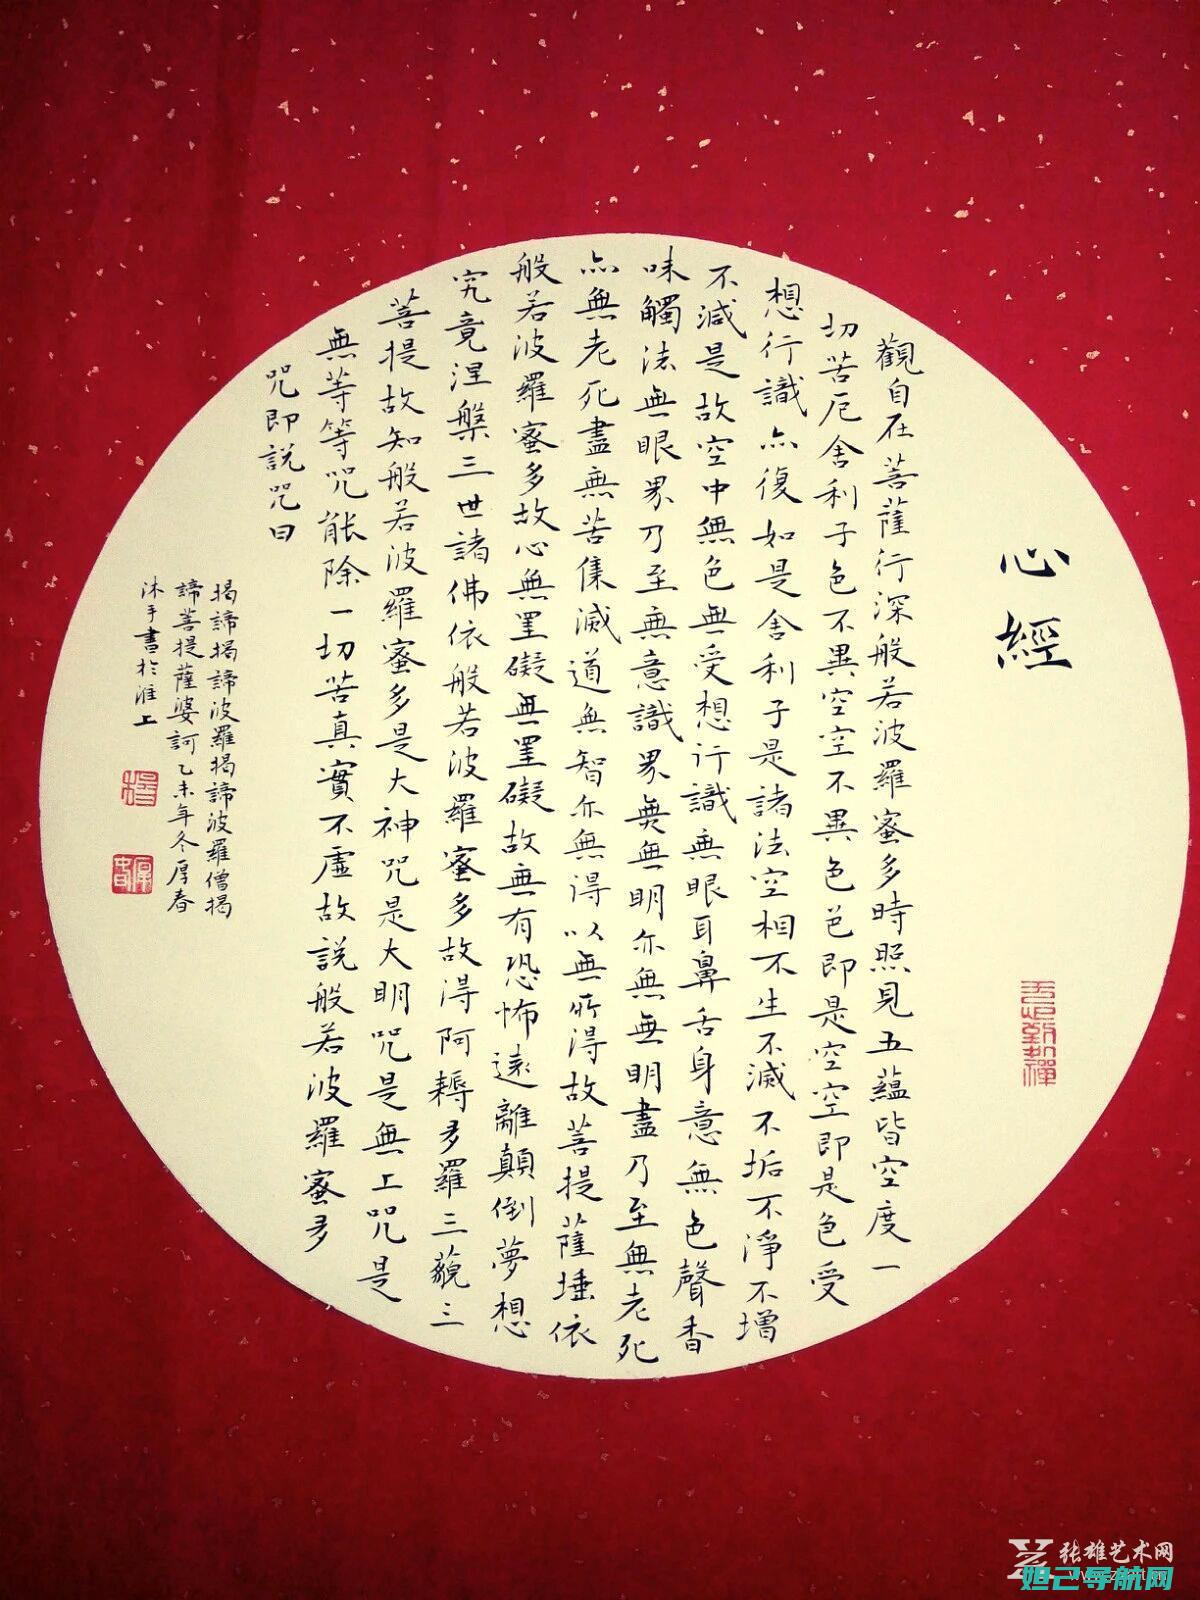 心經
觀自在菩薩行深般若波羅蜜多時照見五蘊皆空度一
切苦厄舍利子色不異空空不異色色即是空空即是色受
想行識亦復如是舍利子是諸法空相不生不滅不垢不淨不增
不減是故空中無色無受想行識無眼耳鼻舌身意無色聲香
味觸法無眼界乃至無意識界無無明亦無無明盡乃至無老死
亦無老死盡無苦集滅道無智亦無得以無所得故菩提薩埵依
般若波羅蜜多故心無罣礙無罣礙故無有恐怖遠離顛倒夢想
究竟涅槃三世諸佛依般若波羅蜜多故得阿耨多羅三藐三
菩提故知般若波羅蜜多是大神咒是大明咒是無上咒是
無等等咒能除一切苦真實不虛故說般若波羅蜜多
咒即說咒曰
揭諦揭諦波羅揭諦波羅僧揭
諦菩提薩婆訶乙未年冬厚春
沐手書於淮上
张雄艺术网
妲己导航网